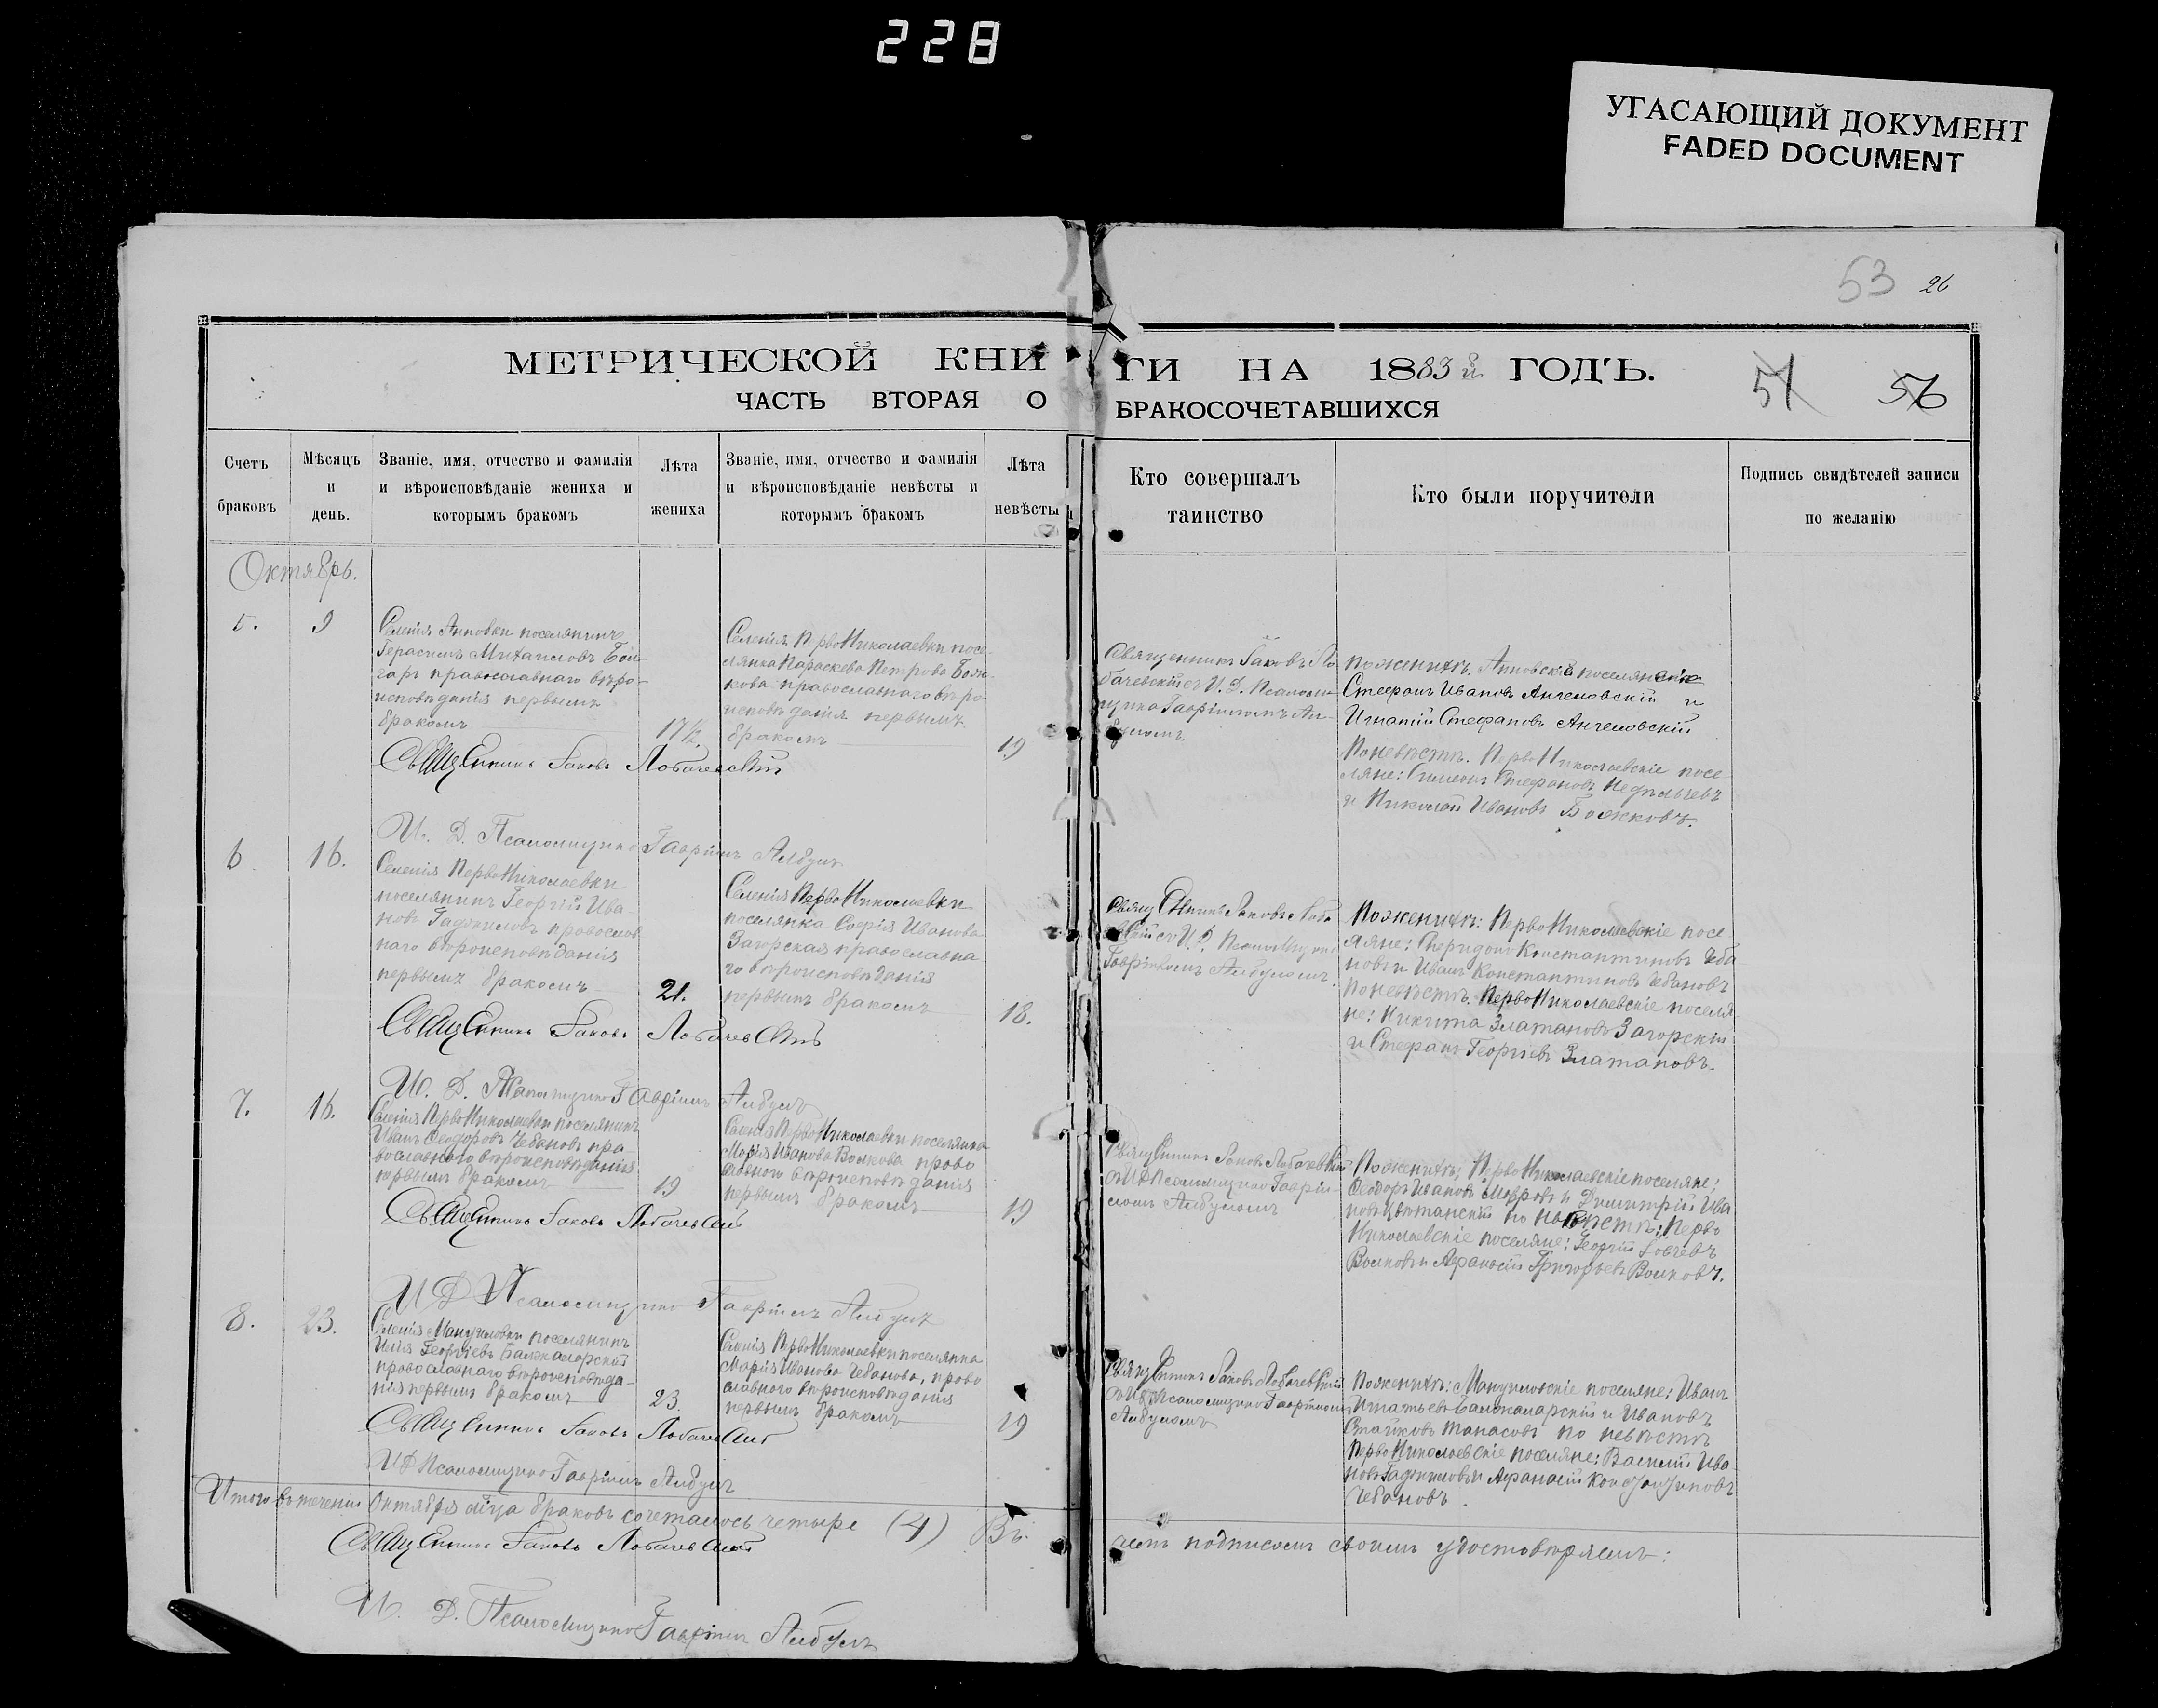 228
УГАСАЮЩИЙ ДОКУМЕНТ
FADED DOCUMENT
53 26
МЕТРИЧЕСКОЙ КНИ
ГИ НА 1883й ГОДЪ.
51 56
ЧАСТЬ ВТОРАЯ О
БРАКОСОЧЕТАВШИХСЯ
Счетъ
браковъ
Мѣсяцъ
и
день.
Званіе, имя, отчество и фамилія
и вѣроисповѣданіе жениха и
которымъ бракомъ
Лѣта
жениха
Званіе, имя, отчество и фамилія
и вѣроисповѣданіе невѣсты и
которымъ бракомъ
Лѣта
невѣсты
Кто совершалъ
таинство
Кто были поручители
Подпись свидѣтелей записи
по желанію
Октябрь.
5.
9
Селенія Анновки поселянинъ
Герасимъ Михаиловъ Бол-
гаръ православнаго вѣро-
исповѣданія первымъ
бракомъ
17½.
Селенія ПервоНиколаевки посе-
лянка Параскева Петрова Бояж-
кова православнаго вѣро-
исповѣданія первымъ
бракомъ
19
Священникъ Іаковъ Ло
бачевскій съ И. Д. Псаломщика Гавріиломъ Ал-
буломъ.
По женихѣ. Анновскіе поселяне
Стефанъ Ивановъ Ангеловскій и
Игнатій Стефановъ Ангеловскій
По невѣстѣ. ПервоНиколаевскіе посе-
ляне: Симеонъ Стефановъ Недѣлчевъ
и Николай Ивановъ Бояжковъ.
Священникъ Іаковъ Лобачевскій
И. Д. Псаломщика Гавріилъ Албулъ
6
16.
Селенія ПервоНиколаевки
поселянинъ Георгій Ива-
новъ Гаджиловъ православ
наго вѣроисповѣданія
первымъ бракомъ
21.
Селенія ПервоНиколаевки
поселянка Софія Иванова
Загорская православна
го вѣроисповѣданія
первымъ бракомъ
18.
Священникъ Іаковъ Лоба
чевскій съ И. Д. Псаломщика
Гавріиломъ Албуломъ.
По женихѣ: ПервоНиколаевскіе посе
ляне: Спиридонъ Константиновъ Чеба
новъ и Иванъ Константиновъ Чебановъ
По невѣстѣ. ПервоНиколаевскіе поселя
не: Никита Златановъ Загорскій
и Стефанъ Георгіевъ Златановъ.
Священникъ Іаковъ Лобачевскій
И. Д. Псаломщика Гавріилъ Албулъ
7.
16.
Селенія ПервоНиколаевки поселянинъ
Иванъ Ѳеодоровъ Чебановъ пра
вославнаго вѣроисповѣданія
первымъ бракомъ
19
Селенія ПервоНиколаевки поселянка
Марія Иванова Волкова право
славного вѣроисповѣданія
первымъ бракомъ
19
Священникъ Іаковъ Лобачевскій
съ И.Д. Псаломщика Гавріи-
ломъ Албуломъ
По женихѣ: ПервоНиколаевскіе поселяне;
Ѳеодоръ Ивановъ Мавровъ и Димитрій Ива
новъ Цвѣтанскій по невѣстѣ: Перво
Николаевскіе поселяне: Георгій
Волковъ и Афанасій Григорьевъ Волковъ.
Священникъ Іаковъ Лобачевскій
И Д Псаломщика Гавріилъ Албулъ
8.
23.
Селенія Мануиловки поселянинъ
Илія Георгіевъ Балжаларскій
православнаго вѣроисповѣда-
нія первымъ бракомъ
23.
Селенія ПервоНиколаевки поселянка
Марія Иванова Чебанова, право
славного вѣроисповѣданія
первымъ бракомъ
19
Священникъ Іаковъ Лобачевскій
съ И.Д. Псаломщика Гавріиломъ
Албуломъ
По женихѣ: Мануиловскіе поселяне: Иванъ
Игнатьевъ Балжаларскій и Ивановъ
Стойковъ Танасовъ по невѣстѣ
ПервоНиколаевскіе поселяне; Василій Ива
новъ Гаджиловъ и Афанасій Константиновъ
Чебановъ.
Священникъ Іаковъ Лобачевскій
И Д Псаломщика Гавріилъ Албулъ
Итого въ теченіи Октября мѣсяца браковъ сочеталось четыре (4) Въ
чемъ подписомъ своимъ удостовѣряемъ:
Священникъ Іаковъ Лобачевскій
И. Д. Псаломщика Гавріилъ Албулъ